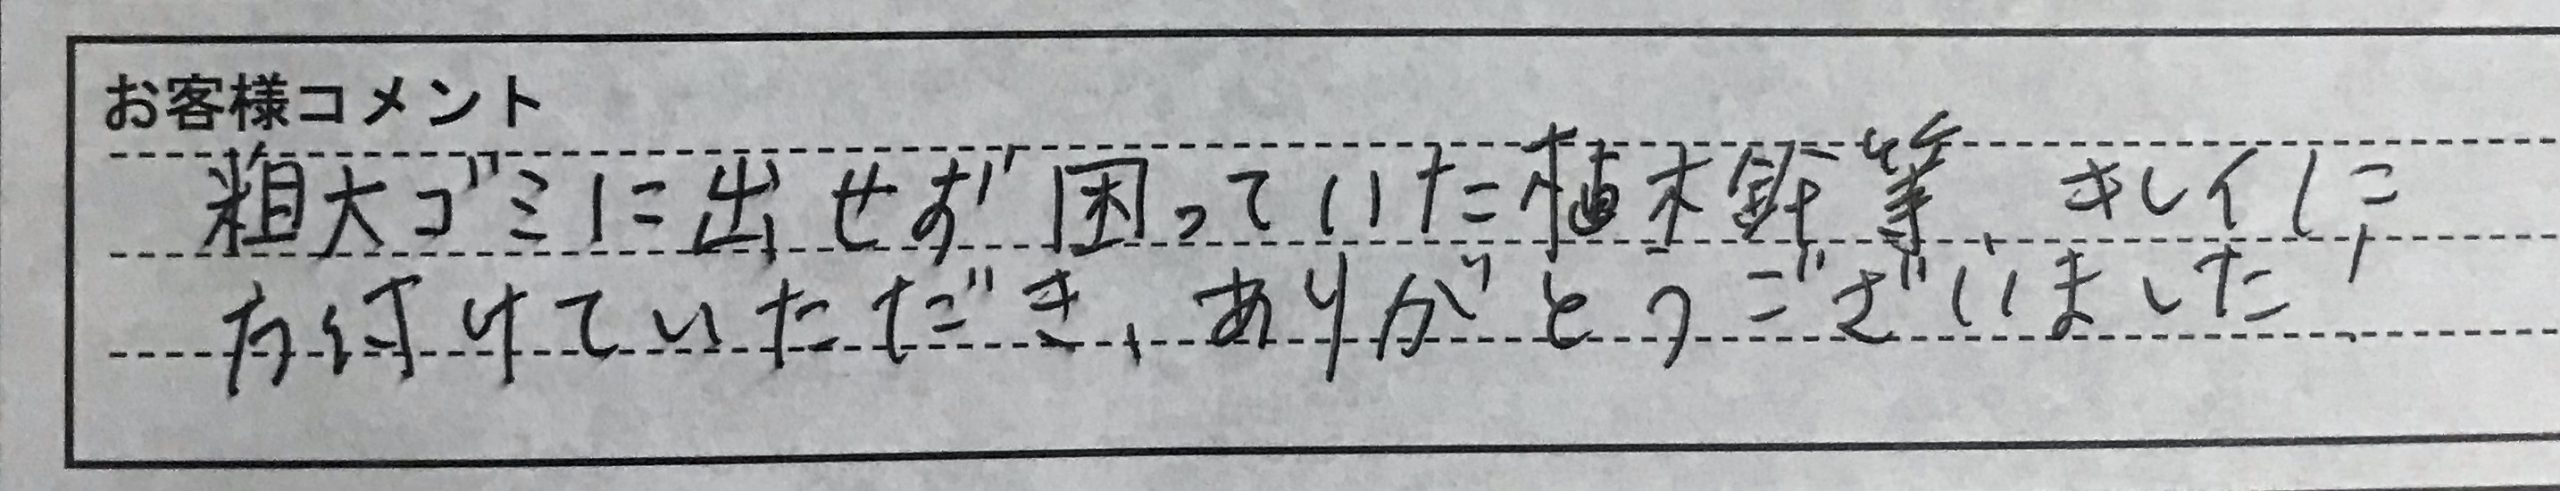 お客様コメント
粗大ゴミに出せず困っていた植木鉢等、キレイに
片付けていただき、ありがとうございました。